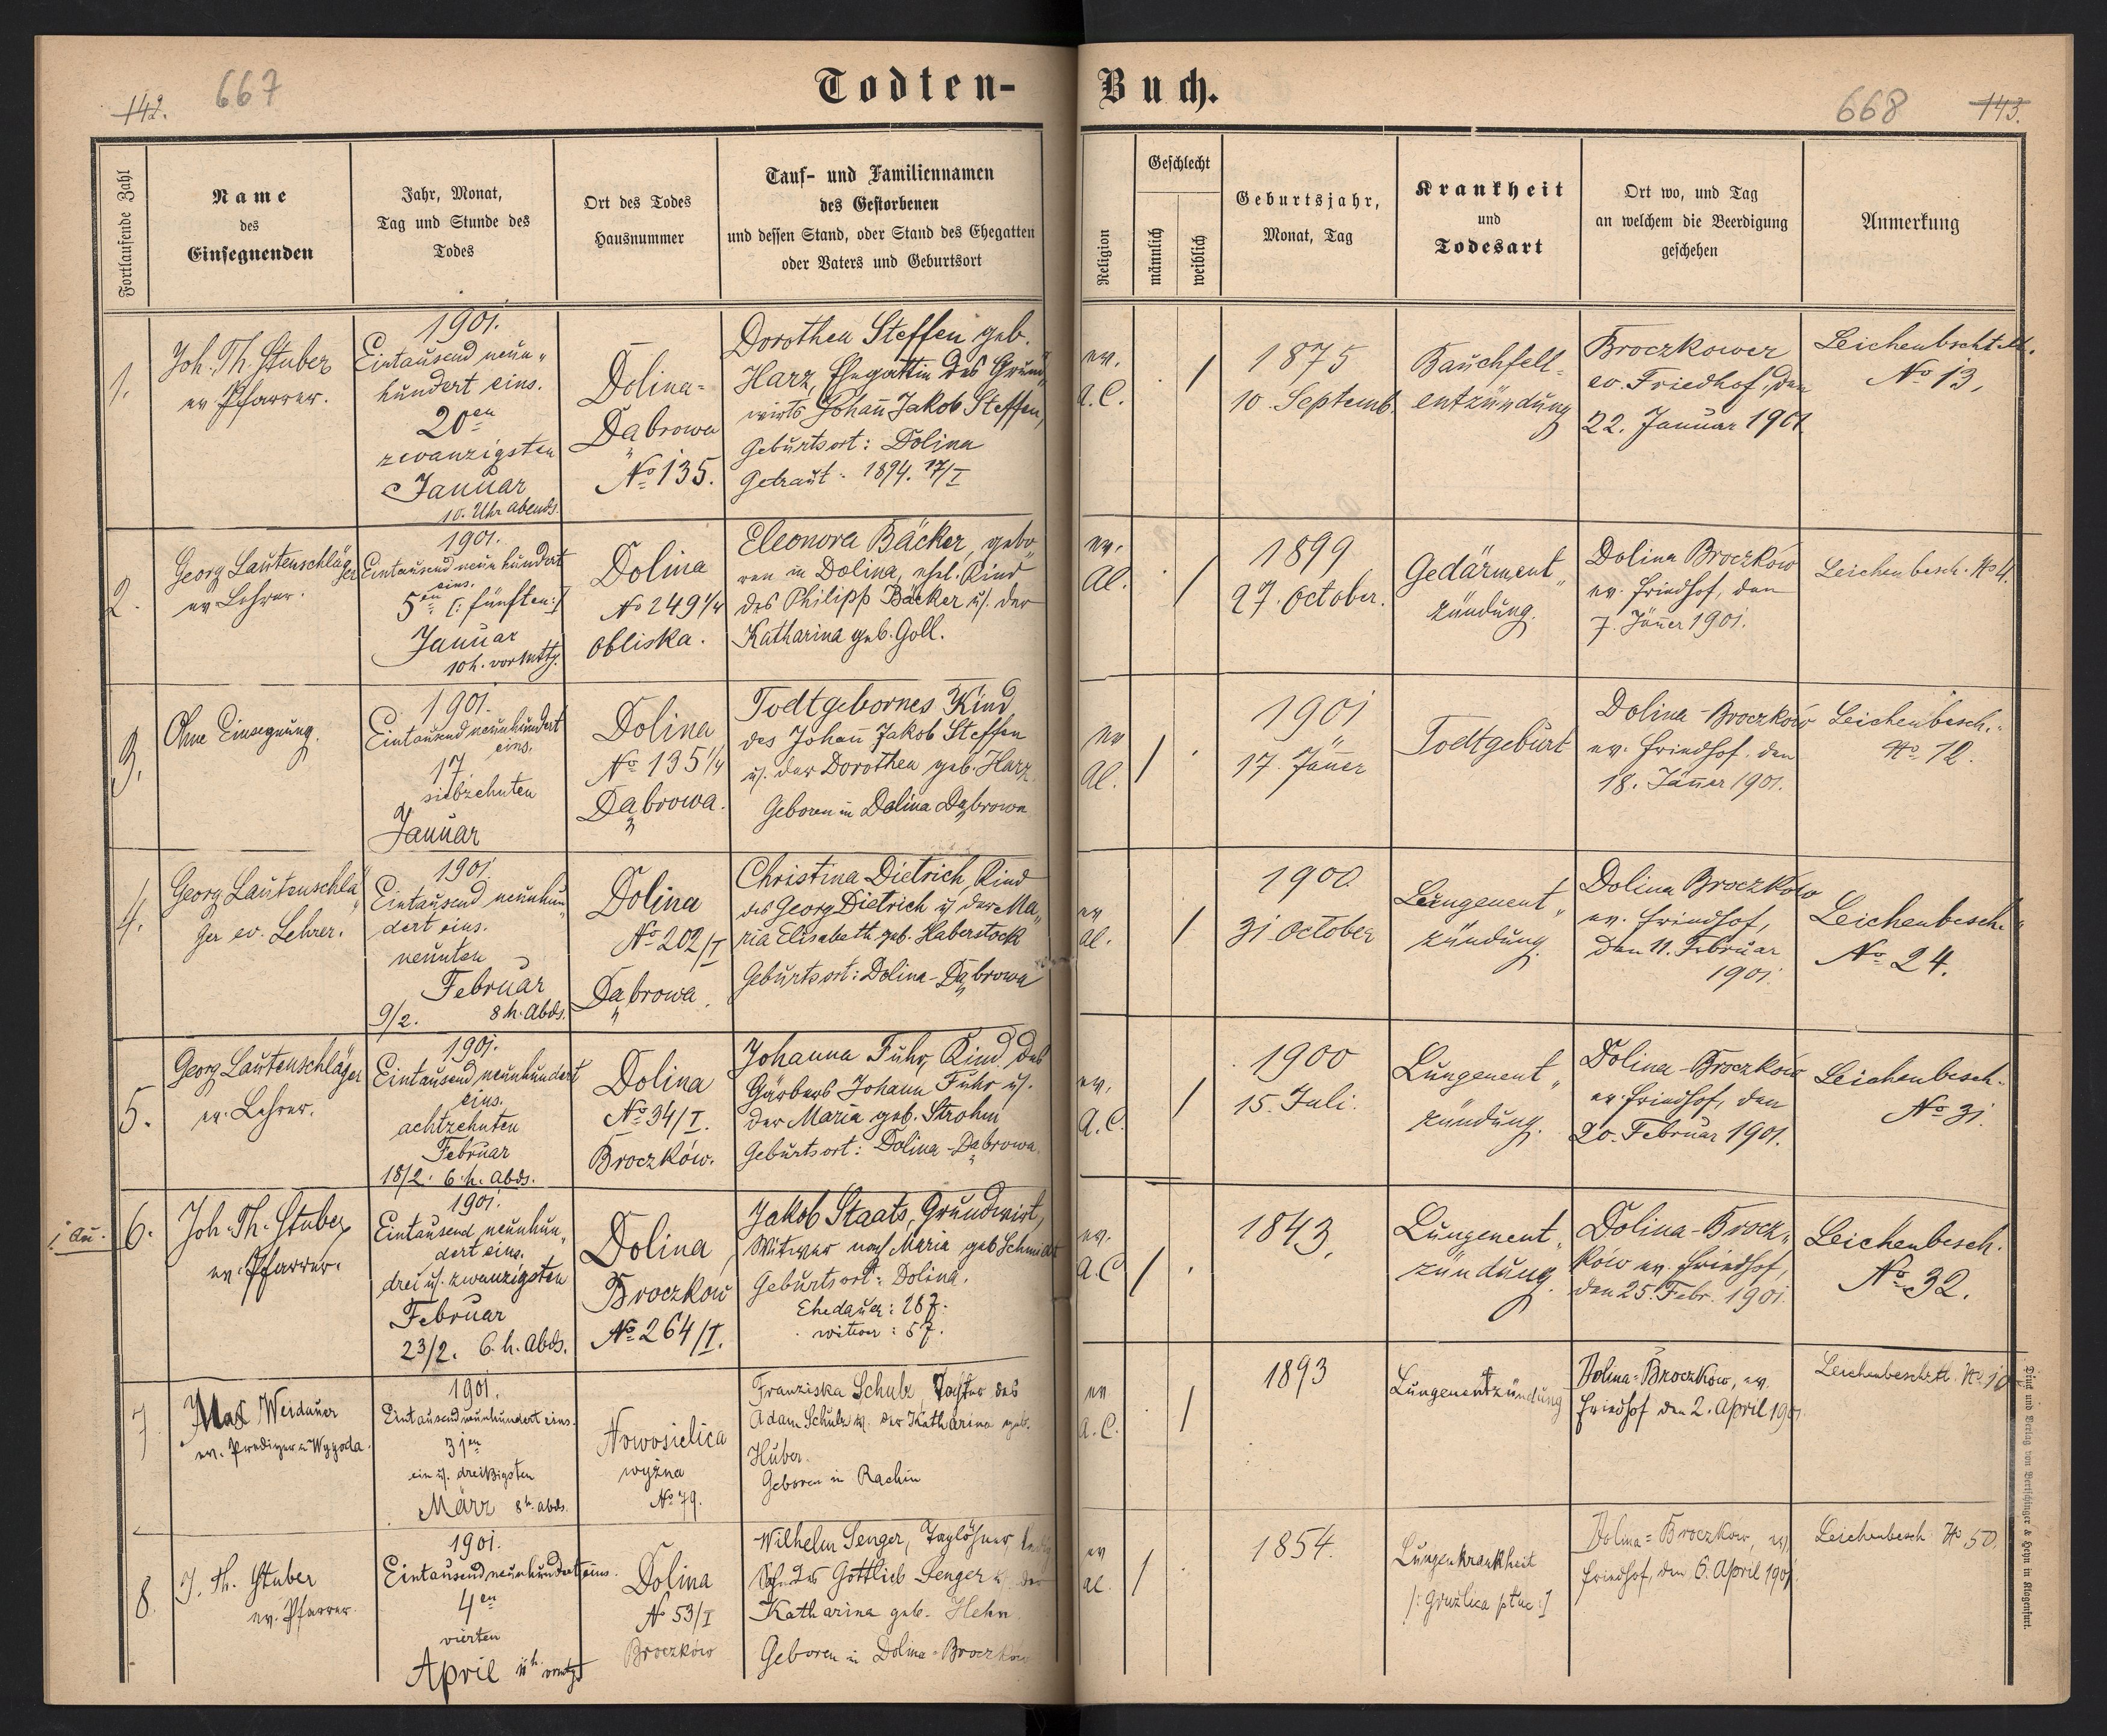 142.
667
Todten-
Buch.
668
143.
Fortlaufende Zahl
Name
des
Einsegnenden
Jahr, Monat,
Tag und Stunde des
Todes
Ort des Todes
Hausnummer
Tauf- und Familiennamen
des Gestorbenen
und dessen Stand, oder Stand des Ehegatten
oder Vaters und Geburtsort
Religion
Geschlecht
männlich
weiblich
Geburtsjahr,
Monat, Tag
Krankheit
und
Todesart
Ort wo, und Tag
an welchem die Beerdigung
geschehen
Anmerkung
1.
Joh. Th. Stuber
ev Pfarrer.
1901.
Eintausend neun„
hundert eins.
20en
zwanzigsten
Januar
10. Uhr Abends.
Dolina-
Dąbrowa
No 135.
Dorothea Steffen geb.
Harz, Ehegattin des Grund„
wirts Johañ Jakob Steffen,
Geburtsort: Dolina
Getraut: 1894. 17/I
ev.
A.C.
/
1875
10. Septemb.
Bauchfell-
entzündung
Broczkower
ev. Friedhof, den
22. Januar 1901.
Leichenbschtztt.
No 13.
2.
Georg Lautenschläger
ev Lehrer.
1901.
Eintausend neun hundert
eins.
5en [: fünften:]
Januar
10 h. vormttg.
Dolina
No 249 1/4
Obliska.
Eleonora Bäcker, gebo„
ren in Dolina, ehel. Kind
des Philipp Bäcker u. der
Katharina geb. Goll.
ev.
Al.
/
1899
27. October.
Gedärment„
zündung.
Dolina Broczków
ev. Friedhof, den
7. Jäner 1901.
Leichenbesch. No 4.
3.
Ohne Einsegnung.
1901.
Eintausend neunhundert
eins.
17
siebzehnten
Januar
Dolina
No 135 1/4
Dąbrowa.
Todtgebornes Kind
des Johañ Jakob Steffen
u. der Dorothea geb. Harz
Geboren in Dolina Dąbrowa
ev
Al.
/
1901
17. Jäner
Todtgeburt
Dolina-Broczków
ev. Friedhof. den
18. Jäner 1901.
Leichenbesch..
No. 12.
4.
Georg Lautenschlä„
ger ev. Lehrer.
1901.
Eintausend neunhun„
dert eins.
neunten
Februar
9/2. 8 h. Abds.
Dolina
No 202/I
Dąbrowa.
Christina Dietrich, Kind
des Georg Dietrich u der Ma„
ria Elisabeth geb. Haberstock
Geburtsort: Dolina-Dąbrowa
ev
al.
/
1900
31 October
Lungenent„
zündung.
Dolina Broczków
ev. Friedhof,
den 11. Februar
1901.
Leichenbesch.
No 24.
5.
Georg Lautenschläger
ev. Lehrer.
1901.
Eintausend neunhundert
eins.
achtzehnten
Februar
18/2. 6. h. Abds.
Dolina
No 34/I.
Broczków.
Johanna Fuhr, Kind des
Gärbers Johann Fuhr u.
der Maria geb. Strohm
Geburtsort: Dolina-Dąbrowa.
ev.
A.C.
/
1900
15. Juli.
Lungenent„
zündung.
Dolina-Broczków
ev. Friedhof, den
20. Februar 1901.
Leichenbesch.
No 31.
6.
Joh. Th. Stuber
ev. Pfarrer.
1901.
Eintausend neunhun„
dert eins.
drei u. zwanzigsten
Februar
23/2. 6. h. Abds.
Dolina
Broczków
No 264/I.
Jakob Staats, Grundwirt,
Witwer nach Maria geb Schmidt
Geburtsort: Dolina.
Ehedauer: 28 J.
witwer: 5 J.
ev.
A.C
/
1843.
Lungenent„
zündung.
Dolina-Brocz„
ków ev. Friedhof,
den 25. Febr. 1901.
Leichenbesch.
No 32.
7
Max Weidauer
ev. Prediger a Wygoda.
1901.
Eintausend neunhundert eins.
31en
ein u. dreißigsten
März 8h. abds.
Nowosielica
wyżna
No 79.
Franziska Schulz Tochter des
Adam Schulz u. der Katharina geb.
Huber.
Geboren in Rachin
ev
A.C.
/
1893
Lungenentzündung
Dolina-Broczkow, ev.
Friedhof den 2. April 1901
8.
J. Th. Stuber
ev. Pfarrer.
1901.
Eintausend neunhundert eins.
4en
vierten
April 11h vormtgs
Dolina
No 53/I
Broczków
Wilhelm Senger, Taglöhner, ledig
Sohn des Gottlieb Senger u. der
Katharina geb. Hehn.
Geboren in Dolina-Broczków
ev
al.
/
1854.
Lungenkrankheit
[: Gruźlica płuc :]
Dolina-Broczkow, ev
Friedhof, den 6. April 1901.
Leichenbesch. No 50.
Druck und Verlag von Bertschinger & Heyn in Klagenfurt.